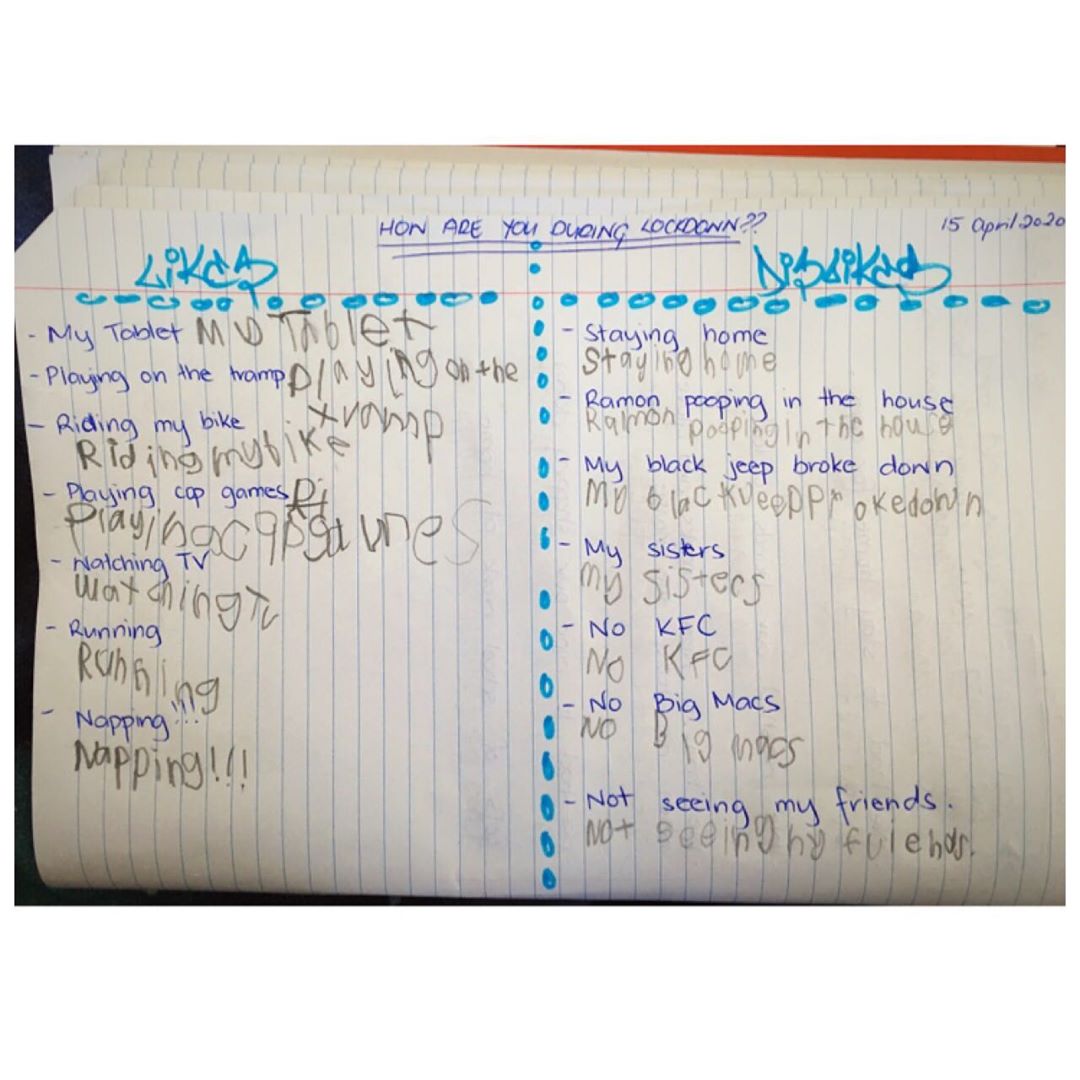 HOW ARE YOU DURING LOCKDOWN??
15 April 2020
Likes
- My Tablet My Tablet
- Playing on the tramp playing on the
tramp
- Riding my bike
Riding my bike
- Playing cop games Pi
Playing cop games
- Watching TV
watching TV
- Running
Running
- Napping!!!
Napping!!!
Dislikes
- Staying home
Staying home
- Ramon pooping in the house
Ramon pooping in the house
- My black jeep broke down
My black jeep prokedown
- My sisters
my sisters
- No KFC
No KFC
- No Big Macs
No Big macs
- Not seeing my friends.
Not seeing my friends.